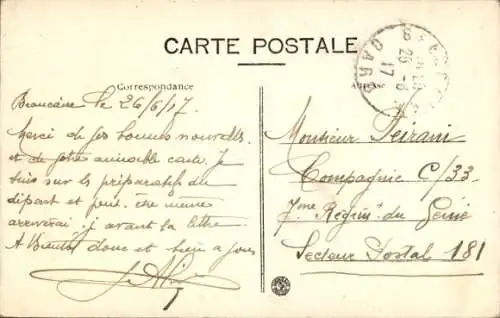 CARTE POSTALE
Correspondance
Adresse
GARD
26-6
17
Beaucaire le 26/6/17.
Merci de ses bonnes nouvelles
et de votre aimable carte. Je
suis sur les préparatifs du
départ et peut être même
arriverai j avant la lettre
A Bientôt donc et bien à vous
Monsieur Peirani
Compagnie C/33
7me Régim't du Génie
Secteur Postal 181